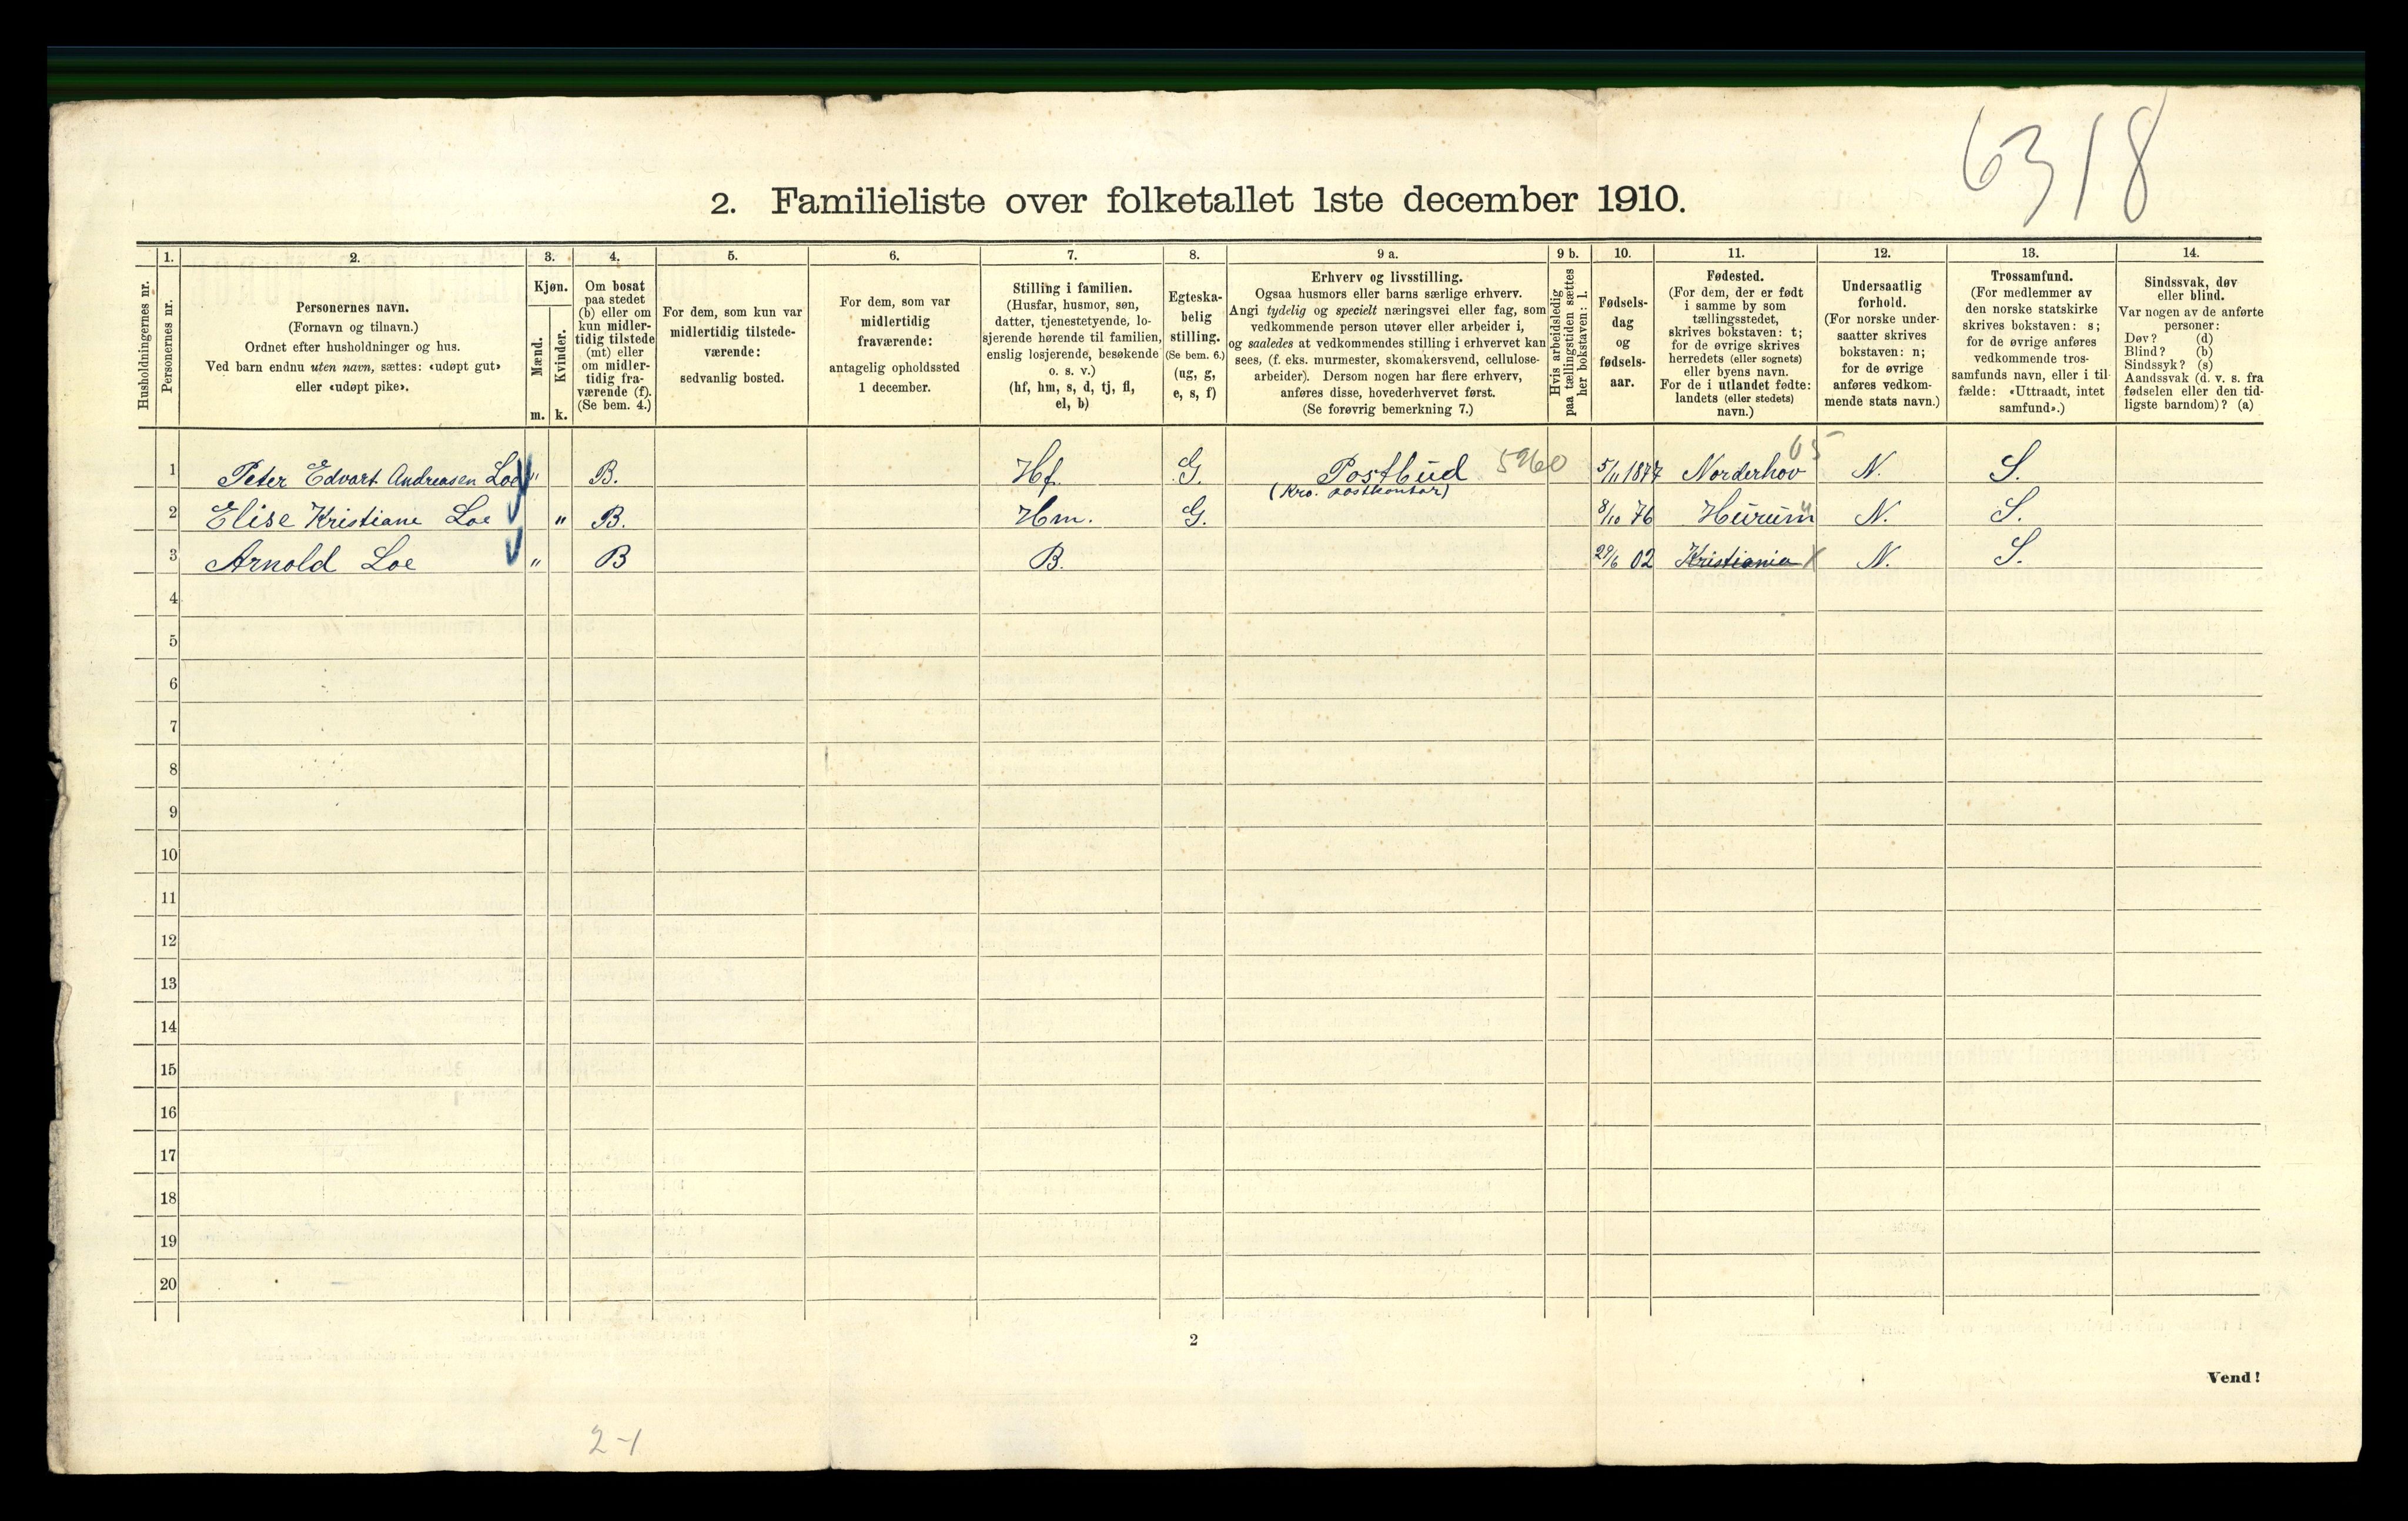 6318
2. Familieliste over folketallet 1ste december 1910.
Husholdningernes nr.
1.
Personernes nr.
2.
Personernes navn.
(Fornavn og tilnavn.)
Ordnet efter husholdninger og hus.
Ved barn endnu uten navn, sættes: «udøpt gut»
eller «udøpt pike».
3.
Kjøn.
Mænd.
m.
Kvinder.
k.
4.
Om bosat
paa stedet
(b) eller om
kun midler-
tidig tilstede
(mt) eller
om midler-
tidig fra-
værende (f).
(Se bem. 4.)
5.
For dem, som kun var
midlertidig tilstede-
værende:
sedvanlig bosted.
6.
For dem, som var
midlertidig
fraværende:
antagelig opholdssted
1 december.
7.
Stilling i familien.
(Husfar, husmor, søn,
datter, tjenestetyende, lo-
sjerende hørende til familien,
enslig losjerende, besøkende
o. s. v.)
(hf, hm, s, d, tj, fl,
el, b)
8.
Egteska-
belig
stilling.
(Se bem. 6.)
(ug, g,
e, s, f)
9 a.
Erhverv og livsstilling.
Ogsaa husmors eller barns særlige erhverv.
Angi tydelig og specielt næringsvei eller fag, som
vedkommende person utøver eller arbeider i,
og saaledes at vedkommendes stilling i erhvervet kan
sees, (f. eks. murmester, skomakersvend, cellulose-
arbeider). Dersom nogen har flere erhverv,
anføres disse, hovederhvervet først.
(Se forøvrig bemerkning 7.)
9 b.
Hvis arbeidsledig
paa tællingstiden sættes
her bokstaven: l.
10.
Fødsels-
dag
og
fødsels-
aar.
11.
Fødested.
(For dem, der er født
i samme by som
tællingsstedet,
skrives bokstaven: t;
for de øvrige skrives
herredets (eller sognets)
eller byens navn.
For de i utlandet fødte:
landets (eller stedets)
navn.)
12.
Undersaatlig
forhold.
(For norske under-
saatter skrives
bokstaven: n;
for de øvrige
anføres vedkom-
mende stats navn.)
13.
Trossamfund.
(For medlemmer av
den norske statskirke
skrives bokstaven: s;
for de øvrige anføres
vedkommende tros-
samfunds navn, eller i til-
fælde: «Uttraadt, intet
samfund».)
14.
Sindssvak, døv
eller blind.
Var nogen av de anførte
personer:
Døv? (d)
Blind? (b)
Sindssyk? (s)
Aandssvak (d. v. s. fra
fødselen eller den tid-
ligste barndom)? (a)
1 Peter Edvart Andreasen Loe " B. Hf. G. Postbud 5960 5/11 1877 Norderhov 65 N. S.
(Kra. postkontor)
2 Elise Kristiane Loe " B. Hm. G. 8/10 76 Hurum N. S.
3 Arnold Loe " B B. 29/6 02 Kristiania X N. S.
4
5
6
7
8
9
10
11
12
13
14
15
16
17
18
19
20
2
Vend!
2-1